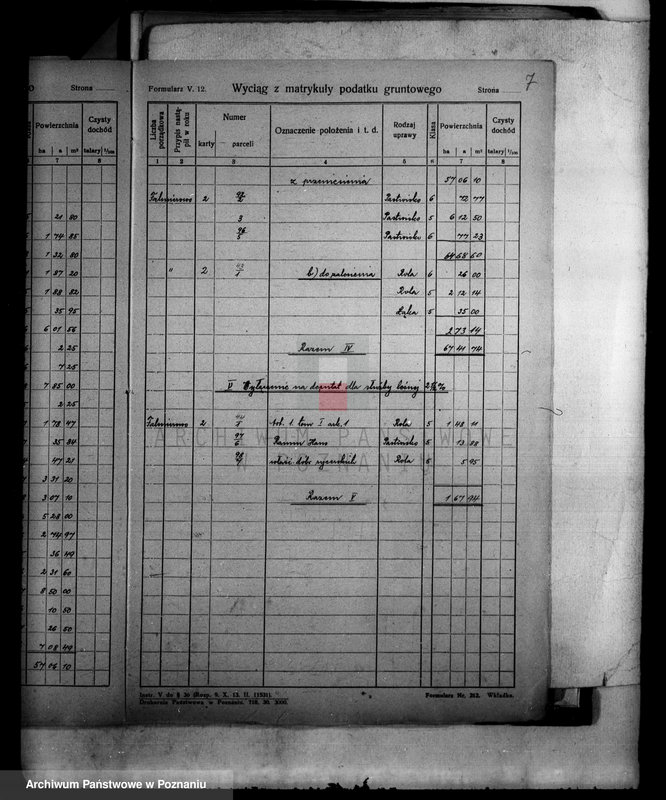 Strona
Powierzchnia Czysty dochód
ha a m² talary 1/100
7 8
21 80
1 74 85
1 32 80
1 87 20
1 88 82
35 95
6 01 56
2 25
7 25
7 85 00
2 25
1 78 47
35 84
47 21
3 31 20
3 07 10
5 28 00
2 74 97
36 49
2 31 60
8 50 00
10 50
26 50
7 08 49
57 06 10
7
Formularz V. 12. Wyciąg z matrykuły podatku gruntowego Strona
Liczba porządkowa Przypis nastąpił w roku Numer karty parceli Oznaczenie położenia i t. d. Rodzaj uprawy Klasa Powierzchnia ha a m² Czysty dochód talary 1/100
1 2 3 4 5 6 7 8
z przeniesienia 57 06 10
2 Pastwisko 6 72 77
3 Pastwisko 5 6 12 50
Pastwisko 6 77 23
64 68 60
" 2 b) do zalesienia Rola 6 26 00
Rola 5 2 12 14
Łąka 5 35 00
2 73 14
Razem IV 67 41 74
V Wyłączenie na deputat dla służby leśnej
2 tot. 1 tom I ark. 1 Rola 5 1 48 11
Hans Pastwisko 5 13 88
Rola 5 5 95
Razem V 1 67 94
ARCHIWUM PAŃSTWOWE
W POZNANIU
Instr. V do § 36 (Rozp. 9. X. 13. II. 11531).
Drukarnia Państwowa w Poznaniu. 718. 30. 3000.
Formularz Nr. 262. Wkładka.
Archiwum Państwowe w Poznaniu